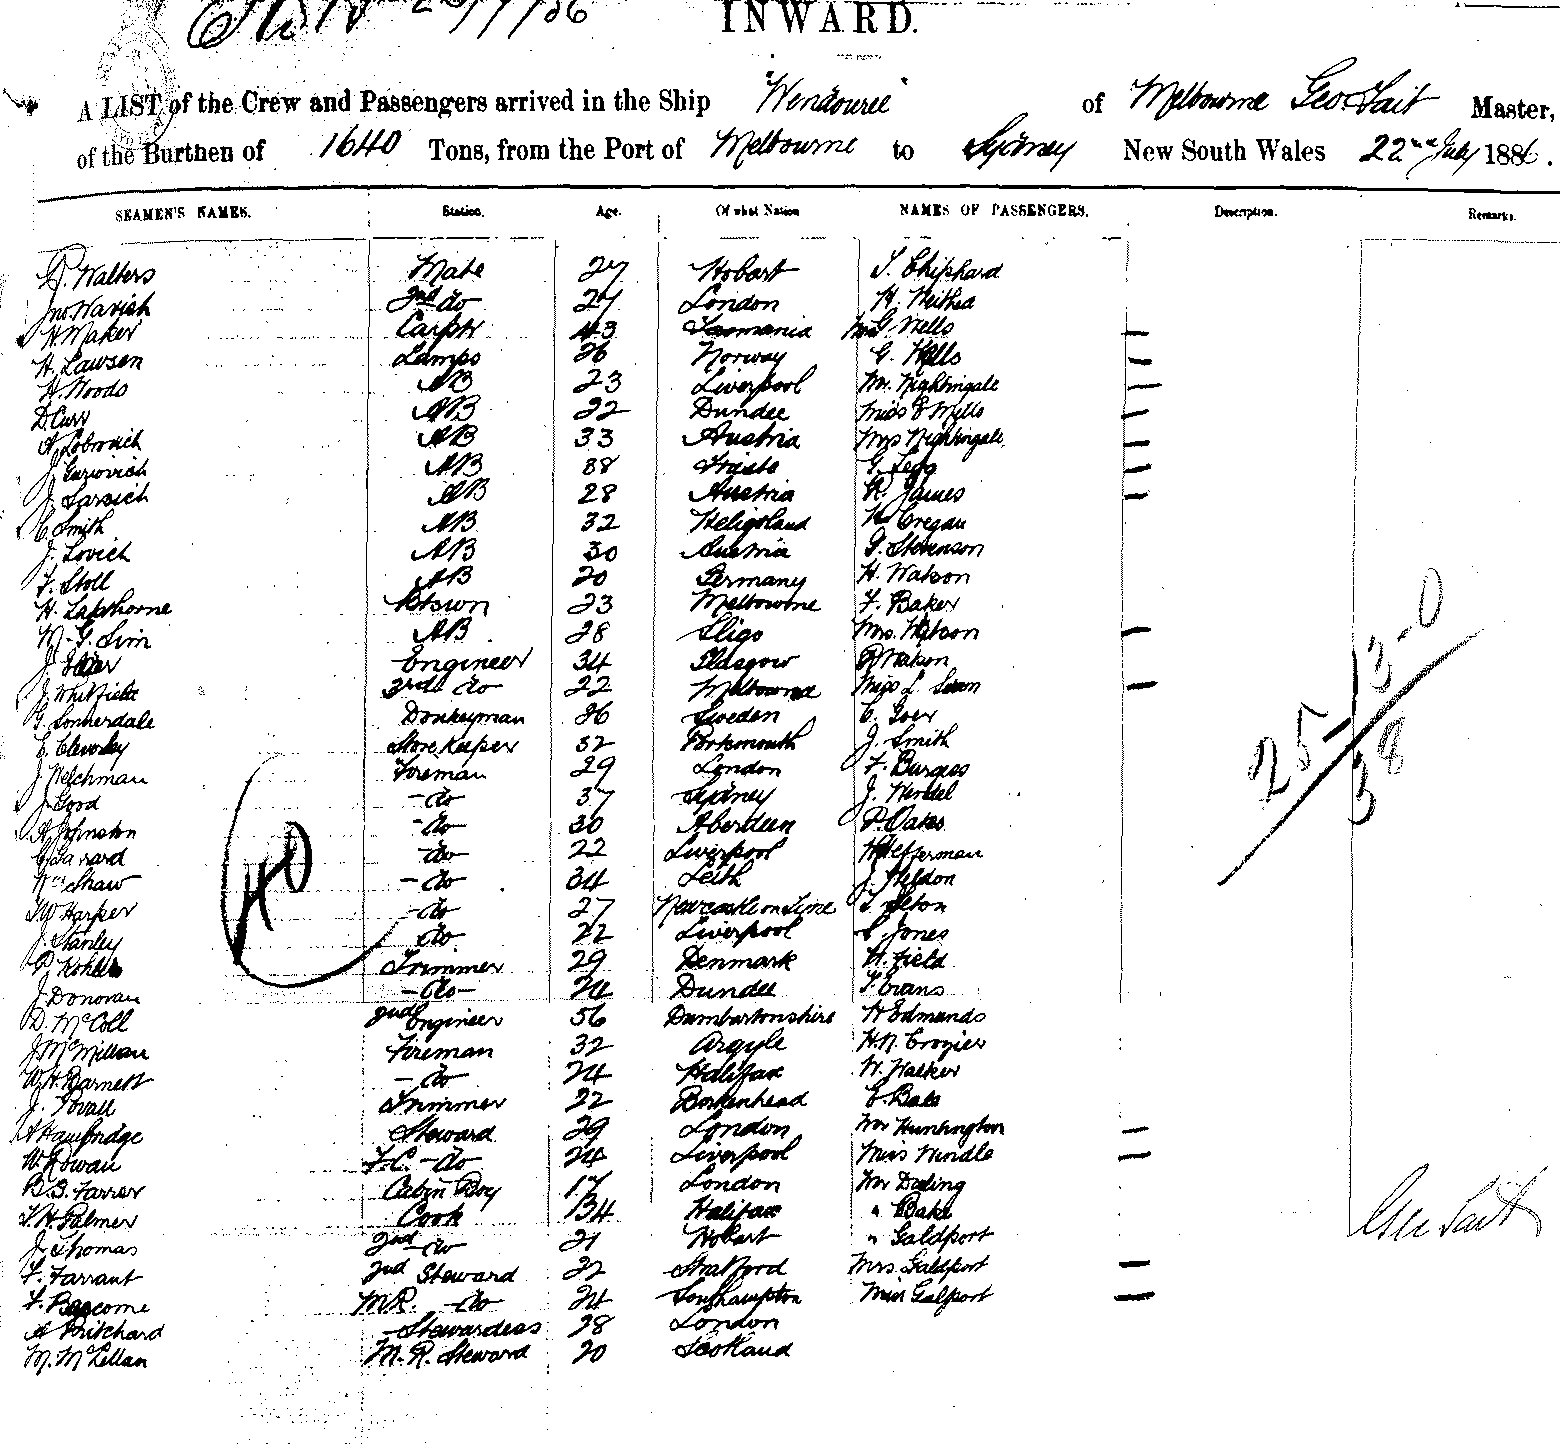 INWARD.
A LIST of the Crew and Passengers arrived in the Ship "Wendouree" of Melbourne Geo. Tait Master,
of the Burthen of 1640 Tons, from the Port of Melbourne to Sydney New South Wales 22nd July 1886.
SEAMEN'S NAMES. Station. Age. Of what Nation NAMES OF PASSENGERS. Description. Remarks.
Walters Mate 27 Hobart T. Chiphard
Jno Warish 2nd do 27 London H.
H Maker Carptr 43 Tasmania Mr G. Mells
H. Lawsen Lamps 26 Norway G. Mells
H. Woods AB 23 Liverpool Mr. Nightingale
D Curr AB 22 Dundee Miss E Mells
A Lobrovich AB 33 Austria Mrs Nightingale
J. AB 38 Trieste G. Legg
J. Larsich AB 28 Austria R. James
C Smith AB 32 Heligoland Cregan
J. Lovich AB 30 Austria G. Stevenson
F. Stoll AB 20 Germany H. Watson
H. Lapthorne Btswn 23 Melbourne F. Baker
N. G. Sim AB 28 Sligo Mrs. Watson
J. Engineer 34 Glasgow
J. Whitfield 3rd do 22 Melbourne Miss L. Swan
G. Sonnerdale Donkeyman 26 Sweden C. Goer
E. Cleverley Store Keeper 32 Portsmouth J. Smith
J. Welchman Foreman 29 London F. Burgess
J. Good - do 37 Sydney J. Windel
A Johnston - do 30 Aberdeen P. Oates
Garrard do 22 Liverpool Heffernan
Wm Shaw - do 34 Leith J. Heldon
J W Harper - do 27 Newcastle on Tyne T. Elton
J. Stanley do 22 Liverpool C. Jones
P. Kohler Trimmer 29 Denmark W. Field
J. Donovan - do - 24 Dundee T. Evans
D. McColl 2nd Engineer 56 Dumbartonshire H Edmands
J. McMillan Fireman 32 Argyle H. N. Crozier
W. H. Barnett - do 24 Halifax W. Walker
J. Povall Trimmer 22 Borkenhead E. Bate
A Hambridge Steward 29 London Mr Huntington
W. Rowan F.C. - do 24 Liverpool Miss Windle
B. G. Farrer Cabin Boy 17 London Mr Deding
T. H. Palmer Cook 34 Halifax " Bake
J. Thomas 2nd do 21 Hobart " Galdport
F. Farrant 2nd Steward 22 Stratford Mrs Galdport
F. Bascome M R. - do 24 Southampton Miss Galport
A Pritchard Stewardess 28 London
M. McLellan M. R. Steward 20 Scotland
40
25-13-0
38
Geo Tait